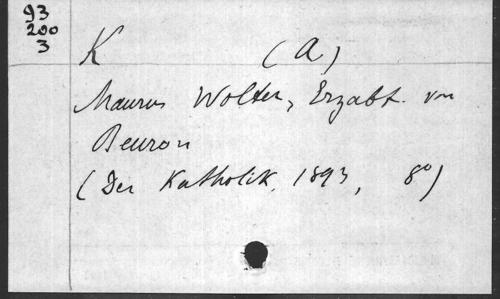 93
200
3
K (A)
Maurus Wolter, Erzabt. von
Beuron
(Der Katholik, 1893, 8°)